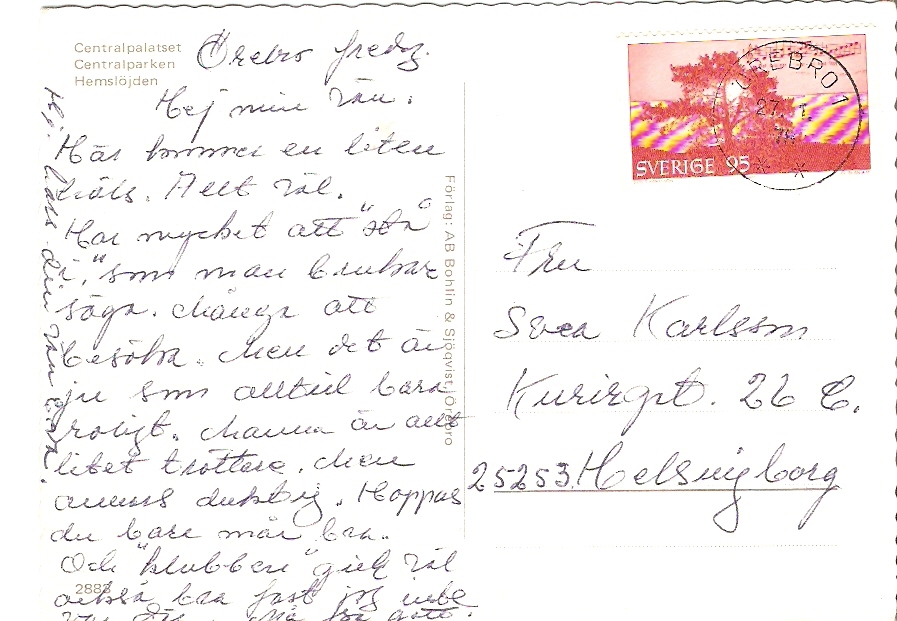 Centralpalatset
Centralparken
Hemslöjden
Örebro fredag.
Hej min vän.
Här kommer en liten
häls. Allt väl.
Har mycket att "stå
i," som man brukar
säga. Många att
besöka. Men det är
ju som alltid bara
roligt. Mamma är allt
litet tröttare. Men
annars duktig. Hoppas
du bara mår bra.
Och "klubben" gick väl
också bra fast jag inte
var där. Må så gott.
din vän
2888
Förlag: AB Bohlin & Sjöqvist, Örebro
SVERIGE 95
ÖREBRO 1
27. 1.
Fru
Svea Karlsson
Kurirgat. 26 C.
25253 Helsingborg